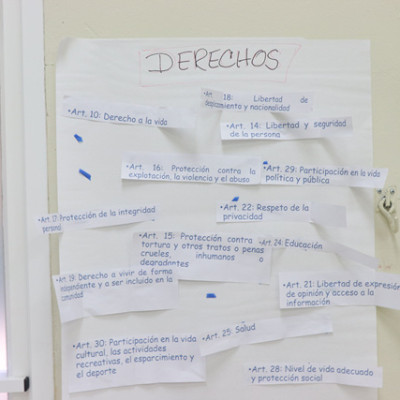 DERECHOS
•Art. 18: Libertad de
desplazamiento y nacionalidad
•Art. 10: Derecho a la vida
•Art. 14: Libertad y seguridad
de la persona
•Art. 16: Protección contra la
explotación, la violencia y el abuso
•Art. 29: Participación en la vida
política y pública
•Art. 17: Protección de la integridad
personal
•Art. 22: Respeto de la
privacidad
•Art. 15: Protección contra
tortura y otros tratos o penas
crueles, inhumanos o
degradantes
•Art. 24: Educación
•Art. 19: Derecho a vivir de forma
independiente y a ser incluido en la
comunidad
•Art. 21: Libertad de expresión
de opinión y acceso a la
información
•Art. 30: Participación en la vida
cultural, las actividades
recreativas, el esparcimiento y
el deporte
•Art. 25: Salud
•Art. 28: Nivel de vida adecuado
y protección social